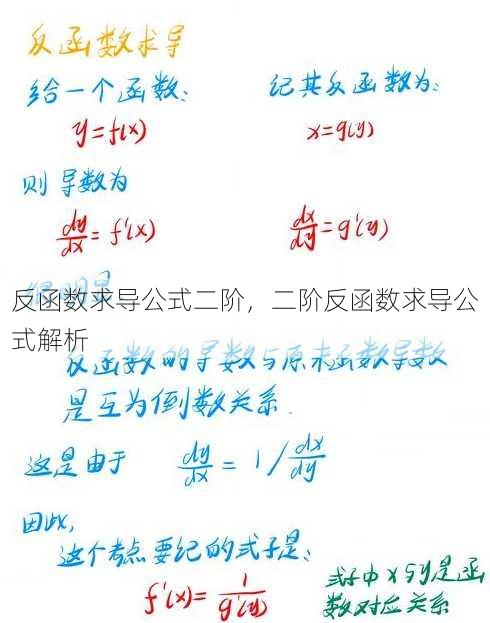 反函数求导
给一个函数: 记其反函数为:
y=f(x) x=g(y)
则导数为
dy/dx=f'(x) dx/dy=g'(y)
反函数求导公式二阶，二阶反函数求导公
式解析
反函数的导数与原来函数导数
是互为倒数关系.
这是由于 dy/dx=1/dx/dy
因此,
这个考点要记的式子是:
f'(x)=1/g'(y) 式子中x与y是函
数对应关系